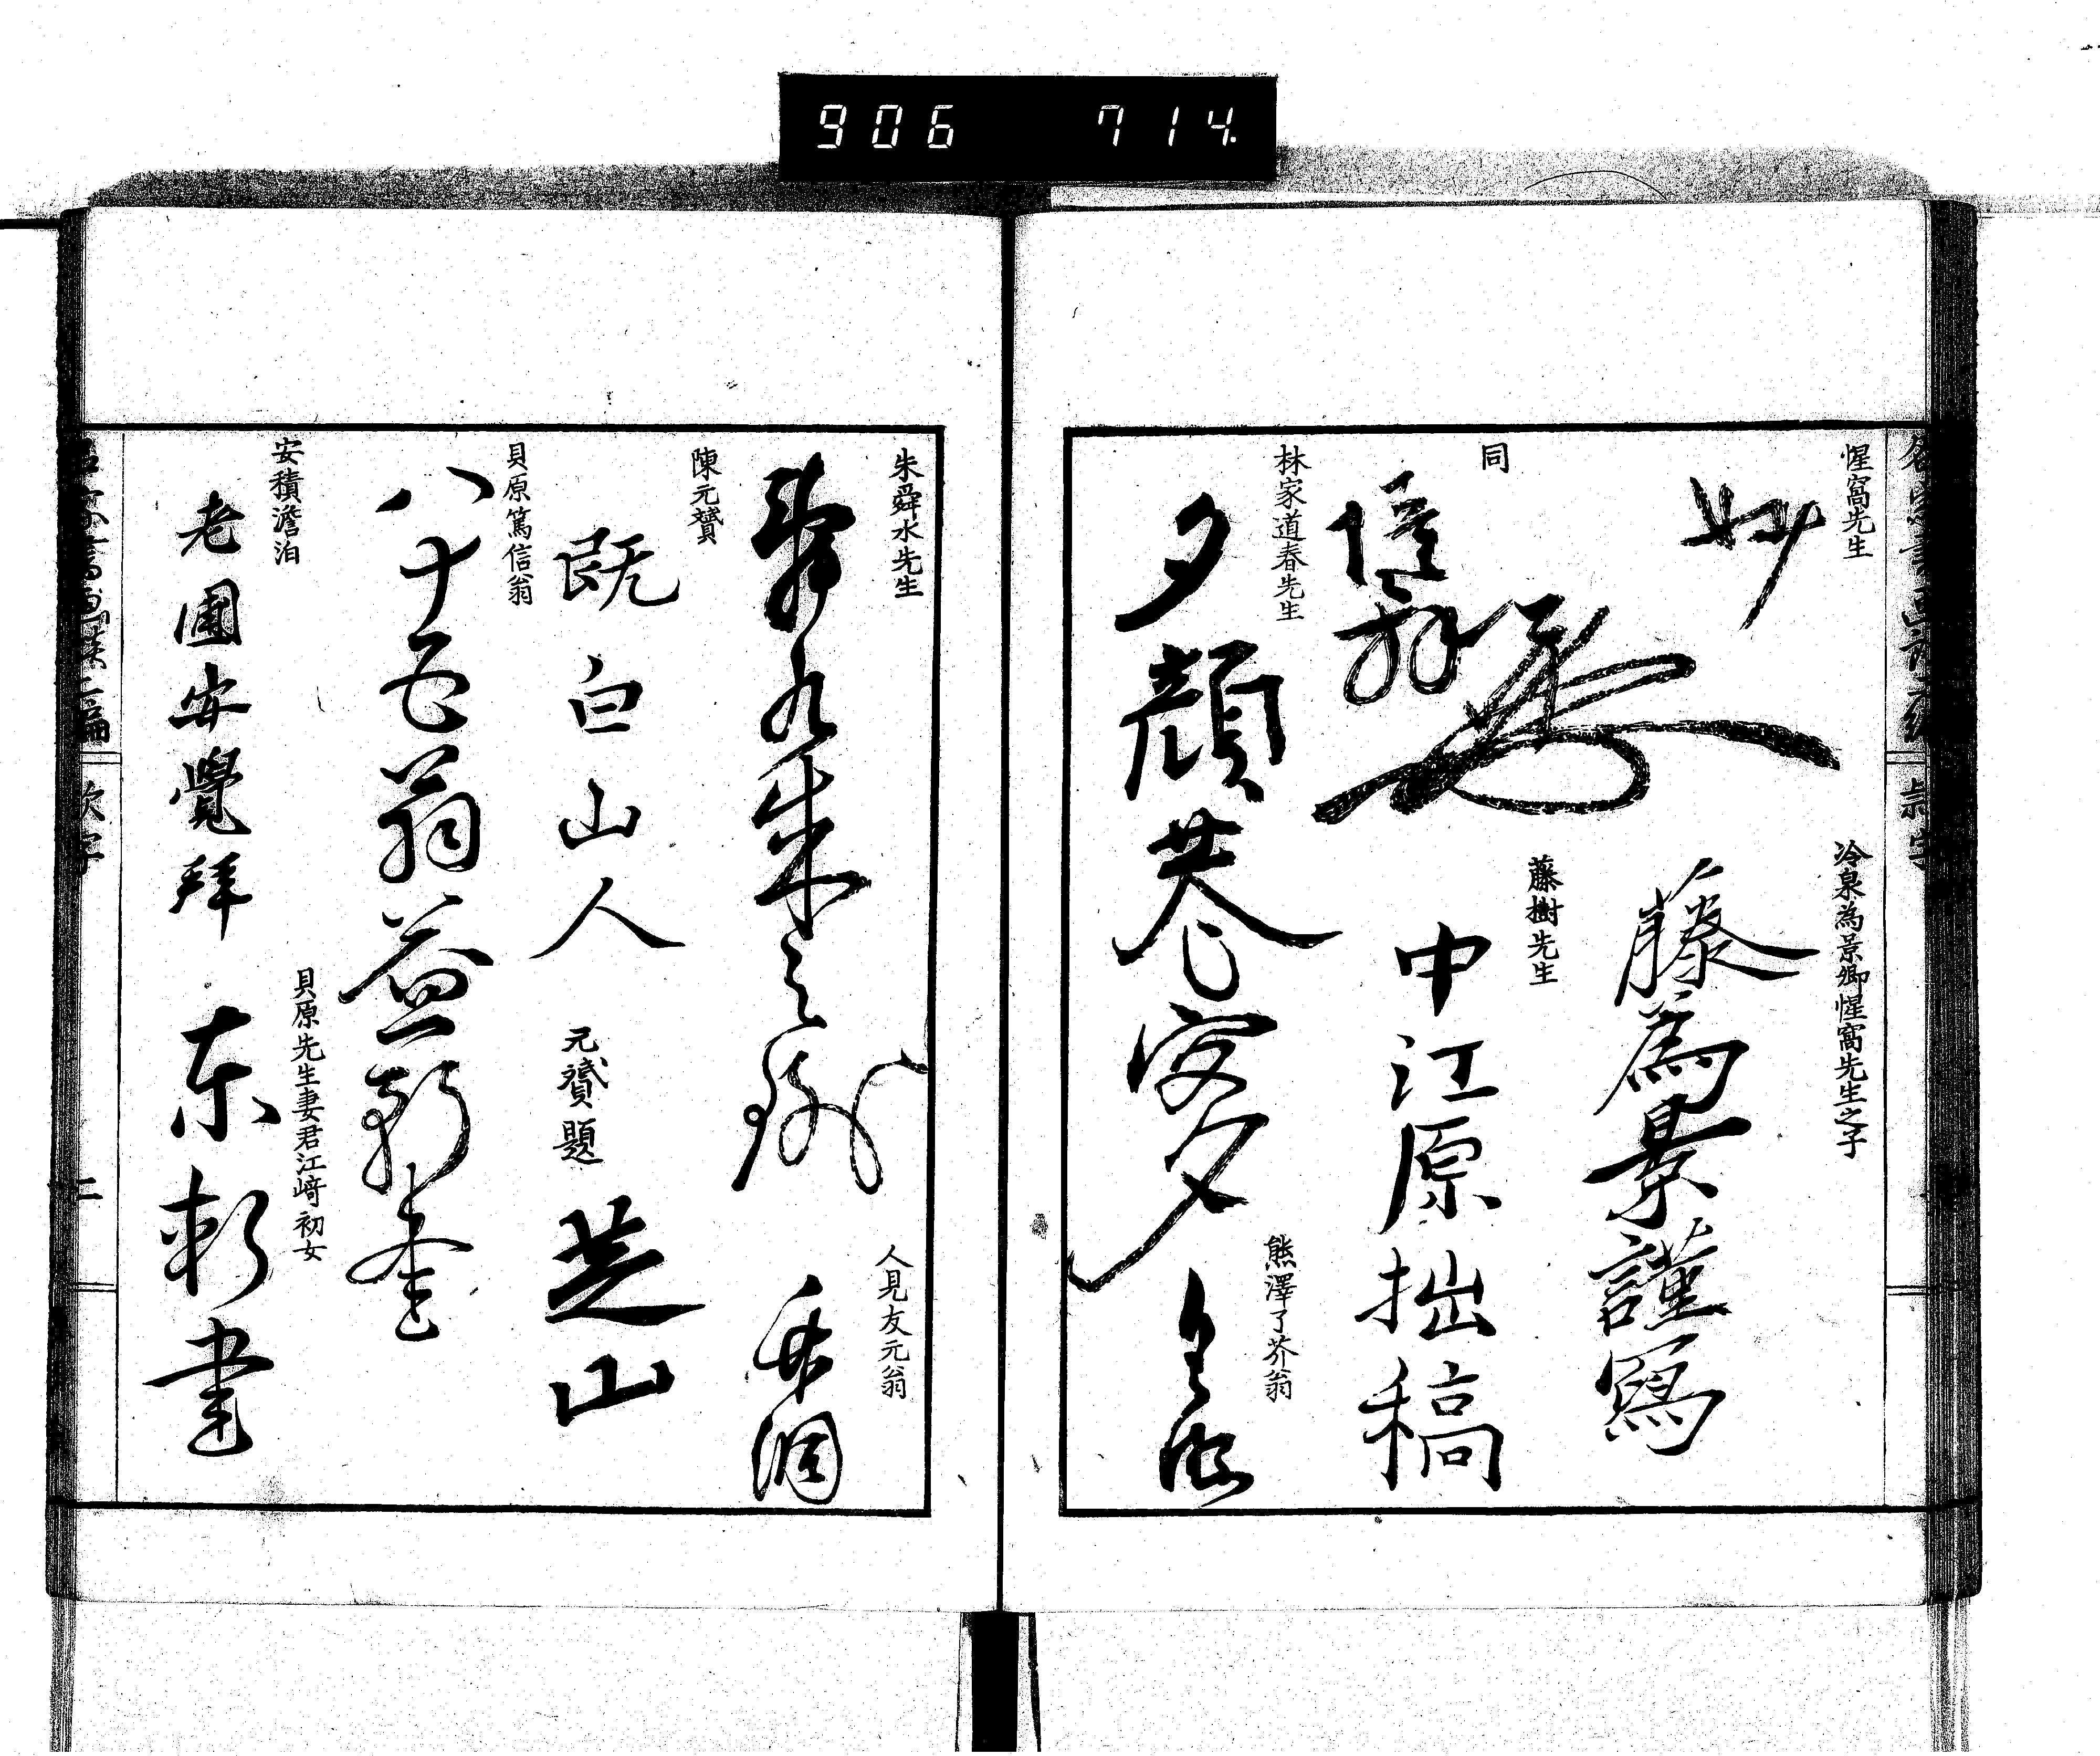 906 714
惺窩先生
妙
冷泉為景卿惺窩先生之子
藤為景謹寫
同
惺
藤樹先生
中江原拙稿
林家道春先生
夕顔巷
熊澤了芥翁
朱舜水先生
舜水朱之瑜
人見友元翁
竹洞
陳元贇
既白山人
元贇題
芝山
貝原篤信翁
八十五翁益軒書
安積澹泊
老圃安覺拜
貝原先生妻君江﨑初女
東軒書
欵字
二